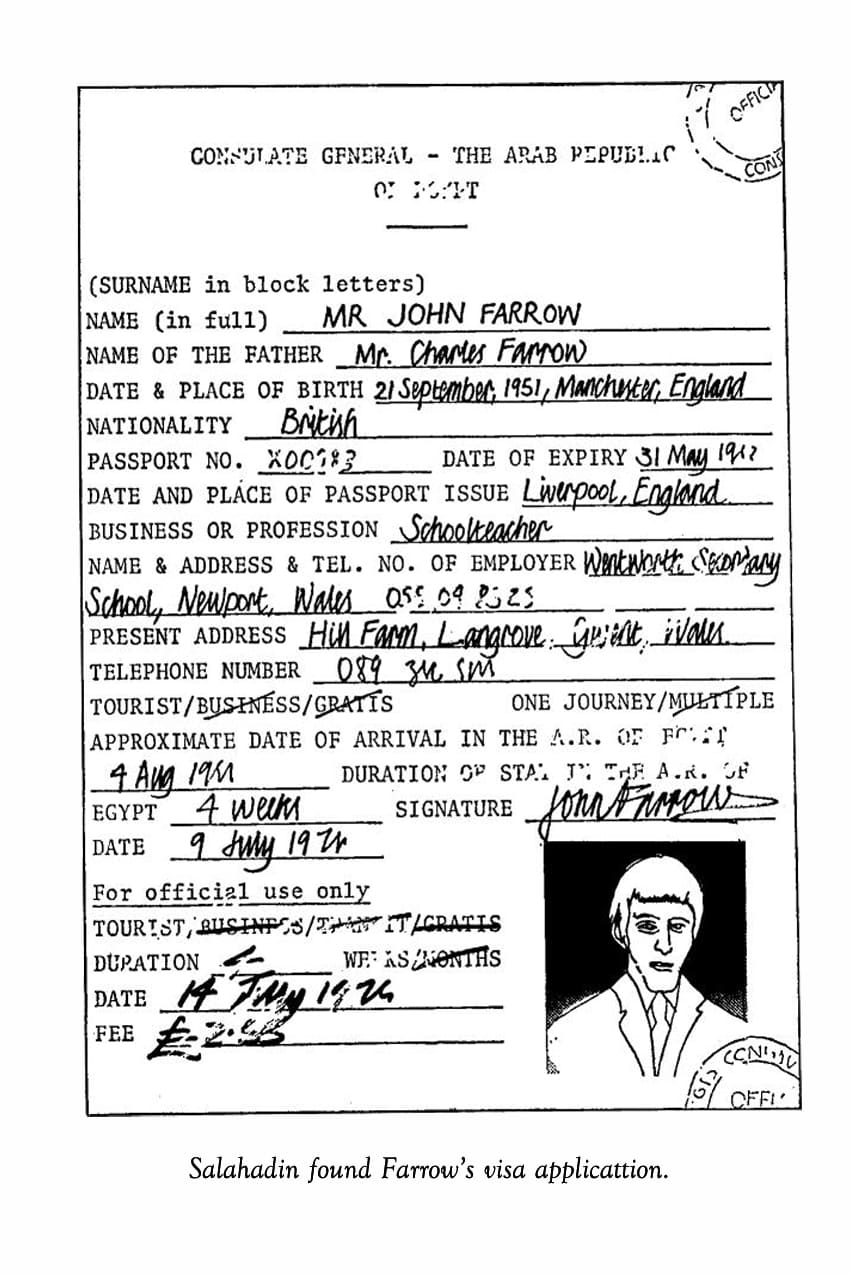 OFFICI
CONS
CONSULATE GENERAL - THE ARAB REPUBLIC
OF EGYPT
(SURNAME in block letters)
NAME (in full) MR JOHN FARROW
NAME OF THE FATHER Mr. Charles Farrow
DATE & PLACE OF BIRTH 21 September, 1951, Manchester, England
NATIONALITY British
PASSPORT NO. DATE OF EXPIRY 31 May
DATE AND PLACE OF PASSPORT ISSUE Liverpool, England
BUSINESS OR PROFESSION Schoolteacher
NAME & ADDRESS & TEL. NO. OF EMPLOYER Wentworth Secondary
School, Newport, Wales
PRESENT ADDRESS Hill Farm, Langrove, Gwent, Wales
TELEPHONE NUMBER 089
TOURIST/BUSINESS/GRATIS ONE JOURNEY/MULTIPLE
APPROXIMATE DATE OF ARRIVAL IN THE A.R. OF EGYPT
4 Aug DURATION OF STAY IN THE A.R. OF
EGYPT 4 weeks SIGNATURE John Farrow
DATE 9 July
For official use only
TOURIST/BUSINESS/TRANSIT/GRATIS
DURATION WEEKS/MONTHS
DATE 14 July
FEE
OFFI
Salahadin found Farrow's visa applicattion.